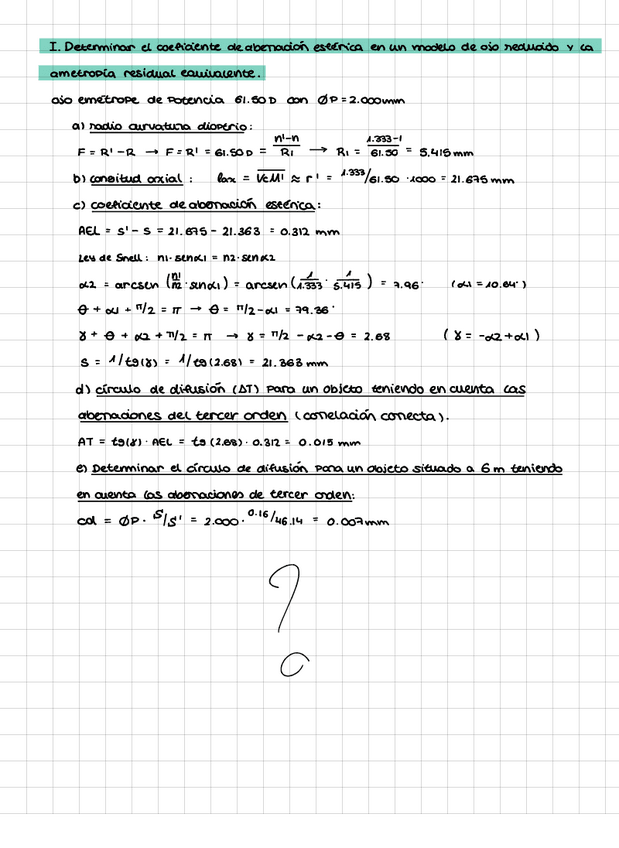 I. Determinar el coeficiente de aberración esférica en un modelo de ojo reducido y la
ametropía residual equivalente.
ojo emétrope de potencia 61.50 D con ØP = 2.000mm
a) radio curvatura dioptrio:
F = R' - R → F = R' = 61.50 D = n'-n/R1 → R1 = 1.333-1/61.50 = 5.415 mm
b) longitud axial : lax = VcM' ≈ r' = 1.333/61.50 · 1000 = 21.675 mm
c) coeficiente de aberración esférica:
AEL = s' - s = 21.675 - 21.363 = 0.312 mm
Ley de Snell: n1· senα1 = n2· senα2
α2 = arcsen (n1/n2 · senα1) = arcsen (1/1.333 · 1/5.415) = 7.96° (α1 = 10.64°)
θ + α1 + π/2 = π → θ = π/2 - α1 = 79.36°
γ + θ + α2 + π/2 = π → γ = π/2 - α2 - θ = 2.68 (γ = -α2+α1)
S = 1/tg(γ) = 1/tg(2.68) = 21.363 mm
d) círculo de difusión (ΔT) para un objeto teniendo en cuenta las
aberraciones del tercer orden (correlación correcta).
AT = tg(γ) · AEL = tg (2.68) · 0.312 = 0.015 mm
e) Determinar el círculo de difusión para un objeto situado a 6 m teniendo
en cuenta las aberraciones de tercer orden:
cdl = ØP · S/S' = 2.000 · 0.16/46.14 = 0.007mm
?